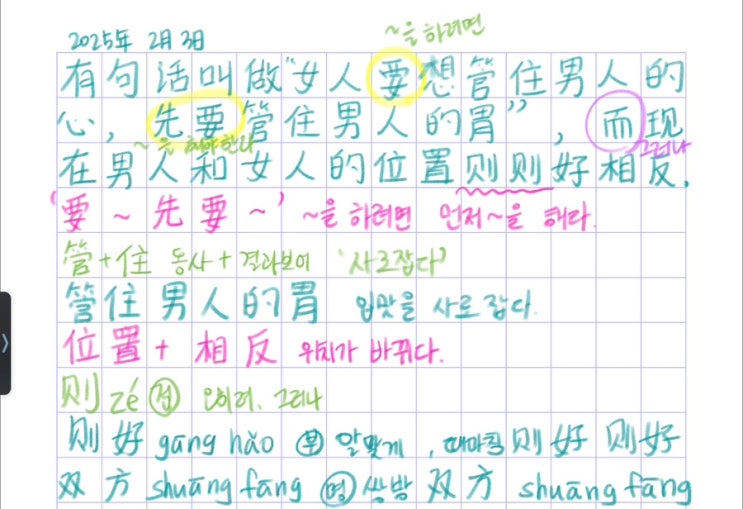 2025年 2月 3日
~을 하려면
有句话叫做"女人要想管住男人的
心, 先要管住男人的胃", 而现
~을 해야한다
그러나
在男人和女人的位置则则好相反.
'要 ~ 先要 ~' ~을 하려면 먼저 ~을 해라.
管+住 동사+결과보어 '사로잡다'
管住男人的胃 입맛을 사로잡다.
位置 + 相反 위치가 바뀌다.
则 zé 접 오히려. 그러나
则好 gāng hǎo 부 알맞게, 때마침 则好 则好
双方 shuāng fāng 명 쌍방 双方 shuāng fāng